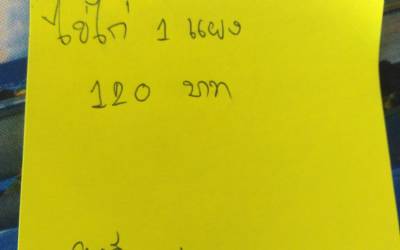 ไข่ไก่ 1 แผง
120 บาท